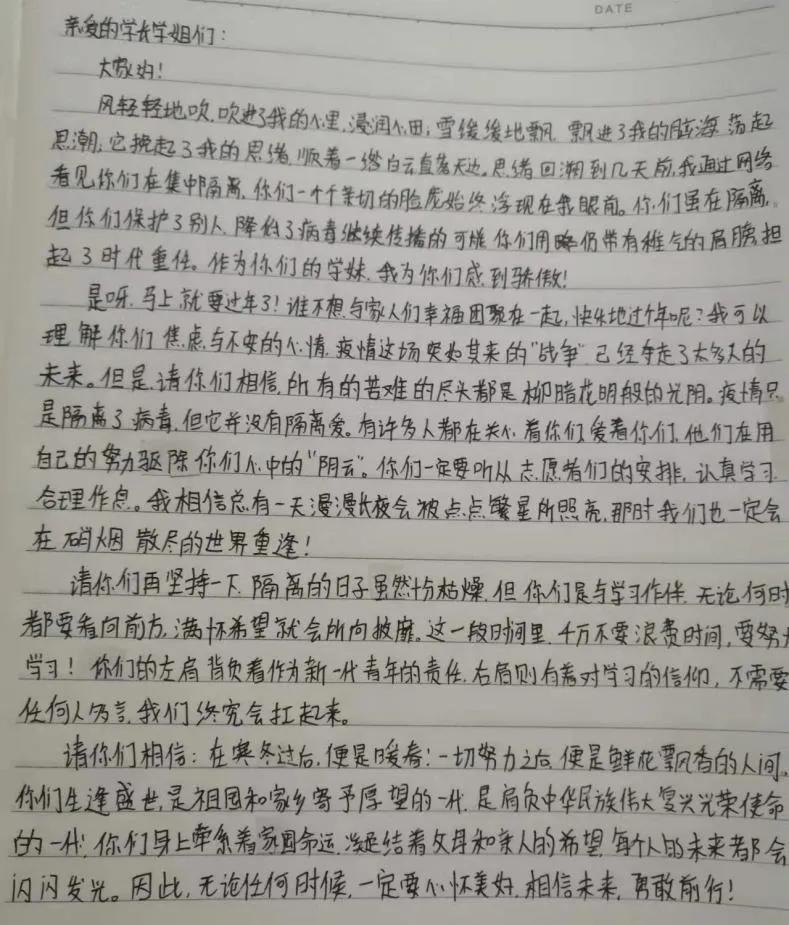 DATE
亲爱的学长学姐们：
大家好！
风轻轻地吹，吹进了我的心里，浸润心田；雪缓缓地飘，飘进了我的脑海，荡起
思潮，它挽起了我的思绪，顺着一缕白云直奔天边。思绪回溯到几天前，我通过网络
看见你们在集中隔离，你们一个个亲切的脸庞始终浮现在我眼前。你们虽在隔离，
但你们保护了别人，降低了病毒继续传播的可能，你们用仍带有稚气的肩膀担
起了时代重任。作为你们的学妹，我为你们感到骄傲！
是呀，马上就要过年了！谁不想与家人们幸福团聚在一起，快乐地过个年呢？我可以
理解你们焦虑与不安的心情，疫情这场突如其来的“战争”已经夺走了太多人的
未来。但是，请你们相信，所有的苦难的尽头都是柳暗花明般的光阴。疫情只
是隔离了病毒，但它并没有隔离爱。有许多人都在关心着你们，爱着你们，他们在用
自己的努力驱除你们心中的“阴云”。你们一定要听从志愿者们的安排，认真学习，
合理作息。我相信总有一天漫漫长夜会被点点繁星所照亮，那时我们也一定会
在硝烟散尽的世界重逢！
请你们再坚持一下，隔离的日子虽然十分枯燥，但你们是与学习作伴，无论何时
都要看向前方，满怀希望就会所向披靡。这一段时间里，千万不要浪费时间，要努力
学习！你们的左肩背负着作为新一代青年的责任，右肩则有着对学习的信仰，不需要
任何人多言，我们终究会扛起来。
请你们相信：在寒冬过后，便是暖春！一切努力之后，便是鲜花飘香的人间。
你们生逢盛世，是祖国和家乡寄予厚望的一代，是肩负中华民族伟大复兴光荣使命
的一代，你们身上牵系着家国命运，凝结着父母和亲人的希望，每个人的未来都会
闪闪发光。因此，无论任何时候，一定要心怀美好，相信未来，勇敢前行！